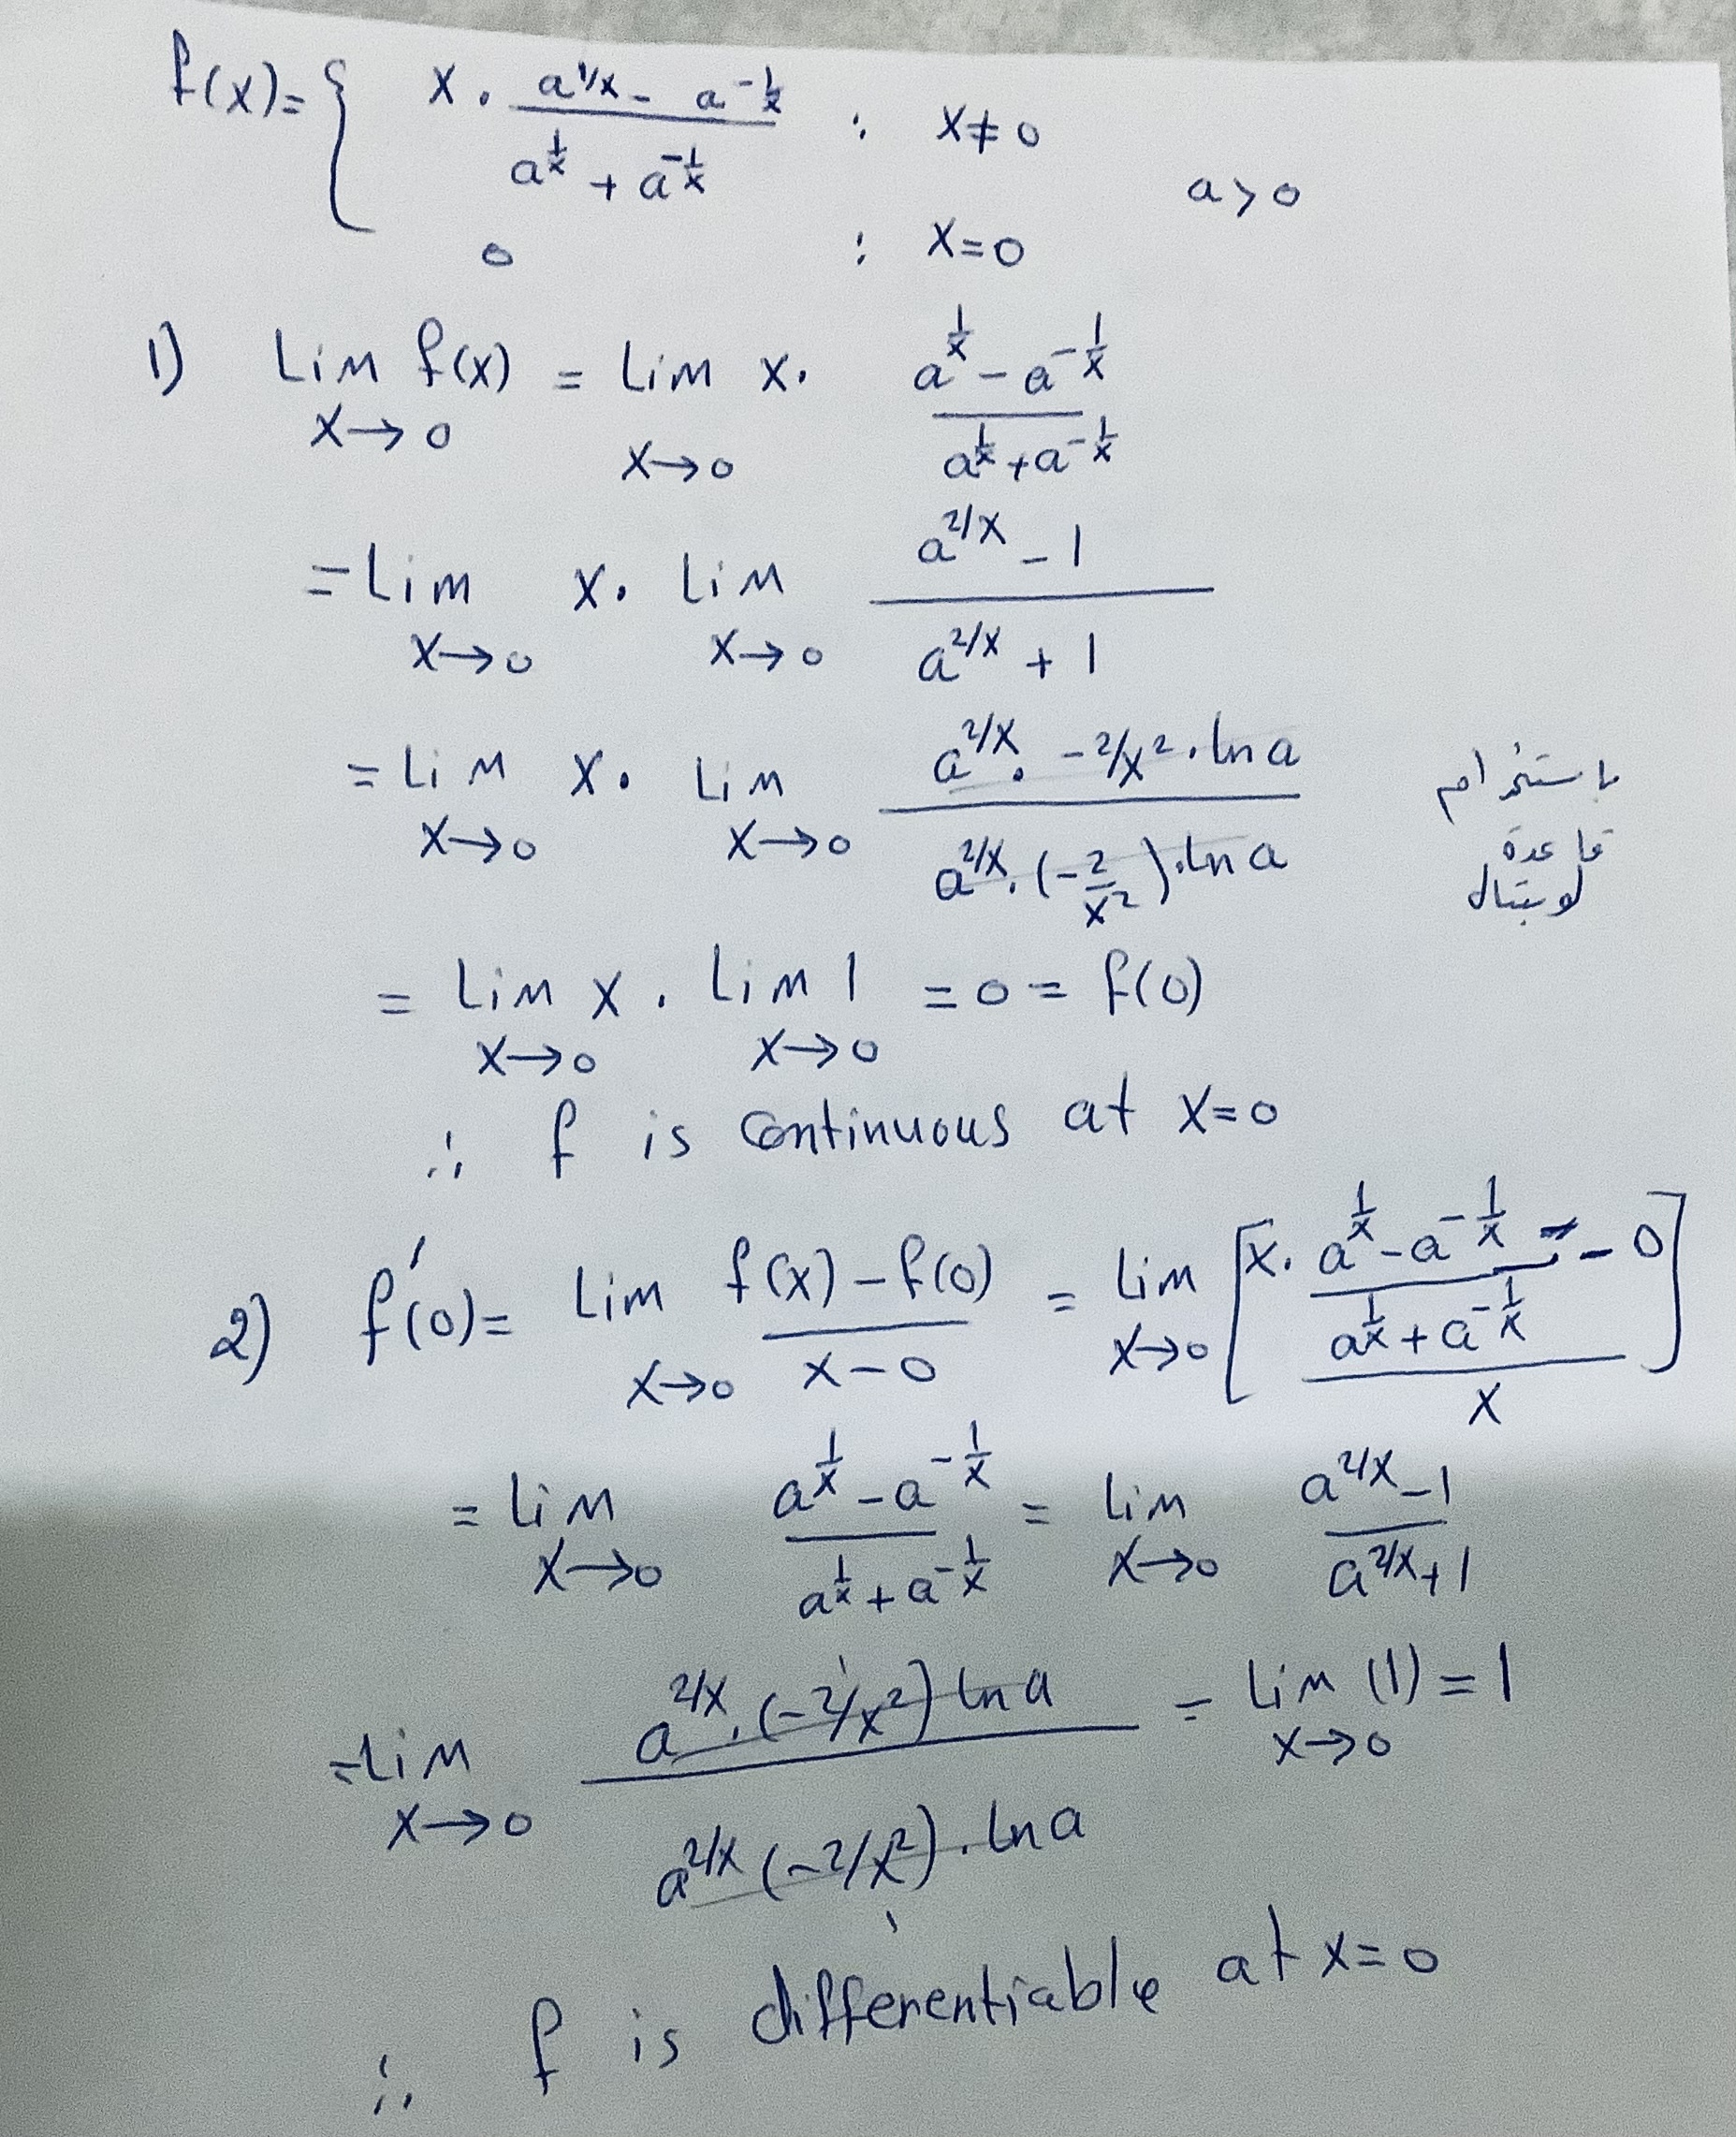 f(x) = { x · (a^{1/x} - a^{-1/x}) / (a^{1/x} + a^{-1/x}) : x ≠ 0
a > 0
0 : x = 0
1) Lim_{x→0} f(x) = Lim_{x→0} x · (a^{1/x} - a^{-1/x}) / (a^{1/x} + a^{-1/x})
= Lim_{x→0} x · Lim_{x→0} (a^{2/x} - 1) / (a^{2/x} + 1)
= Lim_{x→0} x · Lim_{x→0} (a^{2/x} · -2/x² · ln a) / (a^{2/x} · (-2/x²) · ln a) باستخدام
قاعدة
لوبيتال
= Lim_{x→0} x · Lim_{x→0} 1 = 0 = f(0)
∴ f is continuous at x=0
2) f'(0) = Lim_{x→0} (f(x) - f(0)) / (x - 0) = Lim_{x→0} [ (x · (a^{1/x} - a^{-1/x}) / (a^{1/x} + a^{-1/x}) - 0) / x ]
= Lim_{x→0} (a^{1/x} - a^{-1/x}) / (a^{1/x} + a^{-1/x}) = Lim_{x→0} (a^{2/x} - 1) / (a^{2/x} + 1)
= Lim_{x→0} (a^{2/x} · (-2/x²) ln a) / (a^{2/x} (-2/x²) · ln a) = Lim_{x→0} (1) = 1
∴ f is differentiable at x=0